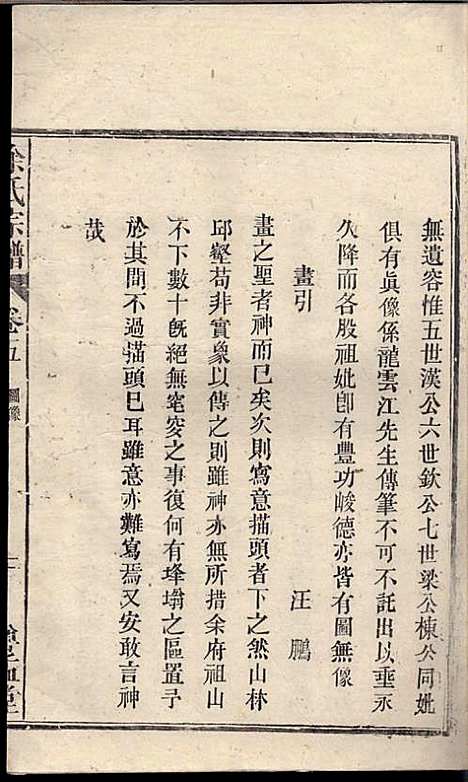 無遺容惟五世漢公六世欽公七世梁公棟公同妣
俱有眞像係龍雲江先生傳筆不可不託出以垂永
久降而各股祖妣卽有豐功峻德亦皆有圖無像
畫引
汪鵬
畫之聖者神而已矣次則寫意描頭者下之然山林
邱壑苟非實象以傳之則雖神亦無所措余府祖山
不下數十旣絕無窀穸之事復何有塋塴之區置予
於其間不過描頭已耳雖意亦難寫焉又安敢言神
哉
徐氏宗譜
卷五
圖像
一